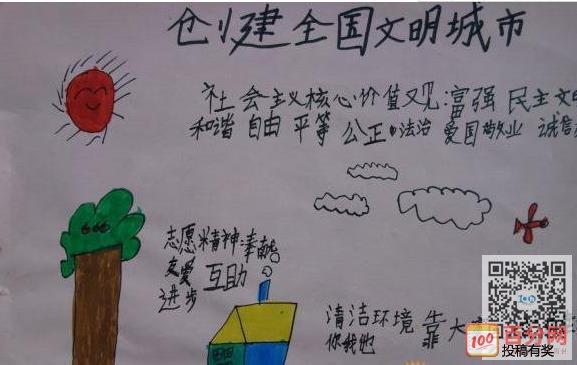 创建全国文明城市
社会主义核心价值观:富强 民主 文明
和谐 自由 平等 公正 法治 爱国 敬业 诚信
志愿精神:奉献
友爱 互助
进步
清洁环境 靠大家
你我他
百分网
100
投稿有奖